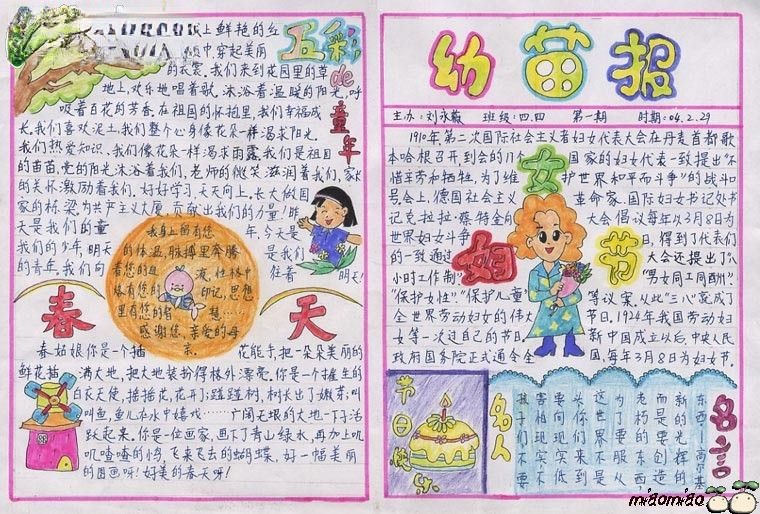 五彩
de
童年
上鲜艳的红
领巾,穿起美丽
的衣裳。我们来到花园里的草
地上,欢乐地唱着歌,沐浴着温暖的阳光,呼
吸着百花的芳香。在祖国的怀抱里,我们幸福成
长。我们喜欢泥土,我们整个心身像花朵一样渴求阳光。
我们热爱知识、我们像花朵一样渴求雨露。我们是祖国
的苗苗,党的阳光沐浴着我们,老师的微笑滋润着我们,家长
的关怀激励着我们。好好学习,天天向上。长大做国
家的栋梁,为共产主义大厦,贡献出我们的力量!昨
天是我们的童年,今天是
我们的少年,明天是我们
的青年。我们向往着明天!
我身上留有您
的体温,脉搏里奔腾
着您的血液,性林中
烙有您的印记,思想
里有您的智慧……
感谢您,亲爱的母
亲。
春天
春姑娘你是一个插花能手,把一朵朵美丽的
鲜花插满大地,把大地装扮得林外漂亮。你是一个催生的
白衣天使,摇摇花,花开了;碰碰树,树长出了嫩芽;叫
叫鱼,鱼儿在水中嬉戏……广阔无垠的大地一下子活
跃起来。你是一位画家,画下了青山绿水,再加上叽
叽喳喳的鸟,飞来飞去的蝴蝶,好一幅美丽
的图画呀!好美的春天呀!
幼苗报
主办:刘永薇 班级:四.四 第一期 时期:04.2.29
妇女节
1910年,第二次国际社会主义者妇女代表大会在丹麦首都歌
本哈根召开,到会的17个国家的妇女代表一致提出“不
惜辛劳和牺牲,为了维护世界和平而斗争”的战斗口
号。会上,德国社会主义革命家、国际妇女书记处书
记克·拉·蔡特金向大会倡议每年以3月8日为
世界妇女斗争日,得到了代表们
的一致通过。大会还提出了“八
小时工作制”、“男女同工同酬”、
“保护女性”、“保护儿童”等议案,从此“三八”就成了
全世界劳动妇女的伟大节日。1924年我国劳动妇
女第一次过自己的节日。新中国成立以后,中央人民
政府国务院正式通令全国,每年3月8日为妇女节。
节日快乐
名人名言
东西——高尔基
miaomiao